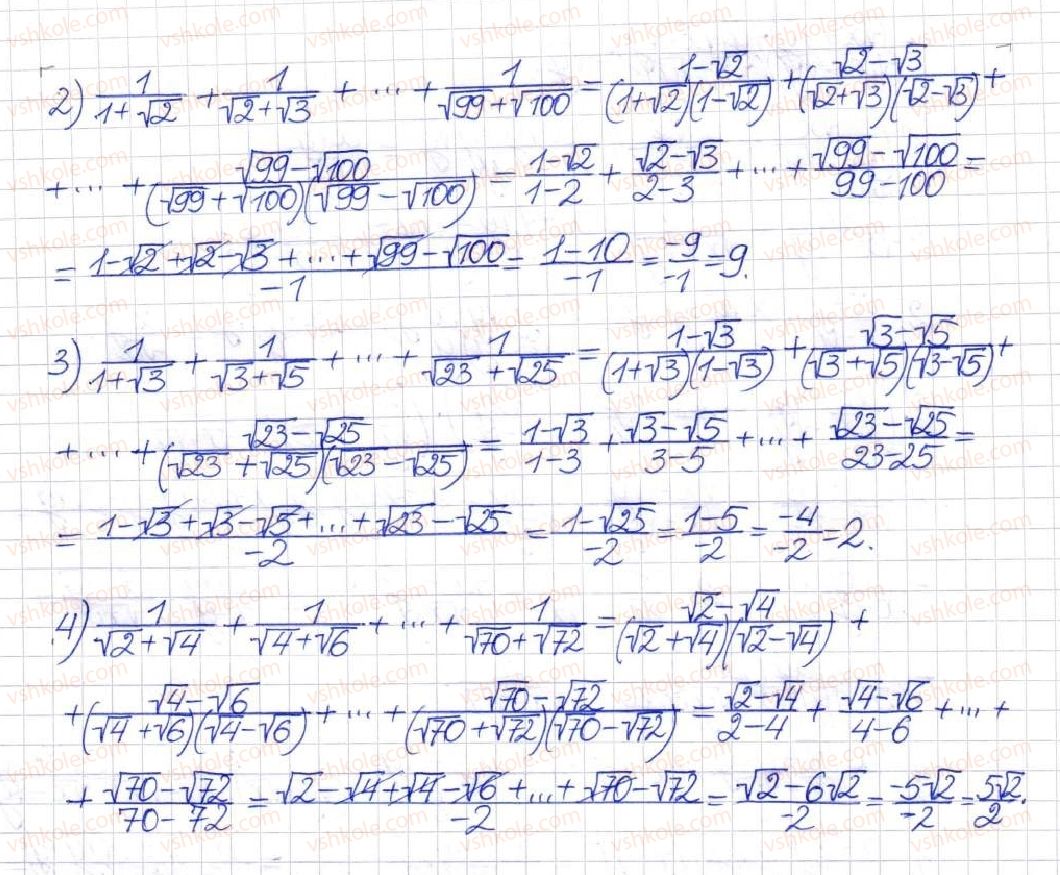 2) 1/(1+√2) + 1/(√2+√3) + ... + 1/(√99+√100) = (1-√2)/((1+√2)(1-√2)) + (√2-√3)/((√2+√3)(√2-√3)) +
+ ... + (√99-√100)/((√99+√100)(√99-√100)) = (1-√2)/(1-2) + (√2-√3)/(2-3) + ... + (√99-√100)/(99-100) =
= (1-√2+√2-√3+...+√99-√100)/(-1) = (1-10)/(-1) = (-9)/(-1) = 9.
3) 1/(1+√3) + 1/(√3+√5) + ... + 1/(√23+√25) = (1-√3)/((1+√3)(1-√3)) + (√3-√5)/((√3+√5)(√3-√5)) +
+ ... + (√23-√25)/((√23+√25)(√23-√25)) = (1-√3)/(1-3) + (√3-√5)/(3-5) + ... + (√23-√25)/(23-25) =
= (1-√3+√3-√5+...+√23-√25)/(-2) = (1-√25)/(-2) = (1-5)/(-2) = (-4)/(-2) = 2.
4) 1/(√2+√4) + 1/(√4+√6) + ... + 1/(√70+√72) = (√2-√4)/((√2+√4)(√2-√4)) +
+ (√4-√6)/((√4+√6)(√4-√6)) + ... + (√70-√72)/((√70+√72)(√70-√72)) = (√2-√4)/(2-4) + (√4-√6)/(4-6) + ... +
+ (√70-√72)/(70-72) = (√2-√4+√4-√6+...+√70-√72)/(-2) = (√2-6√2)/(-2) = (-5√2)/(-2) = 5√2/2.
vshkole.com